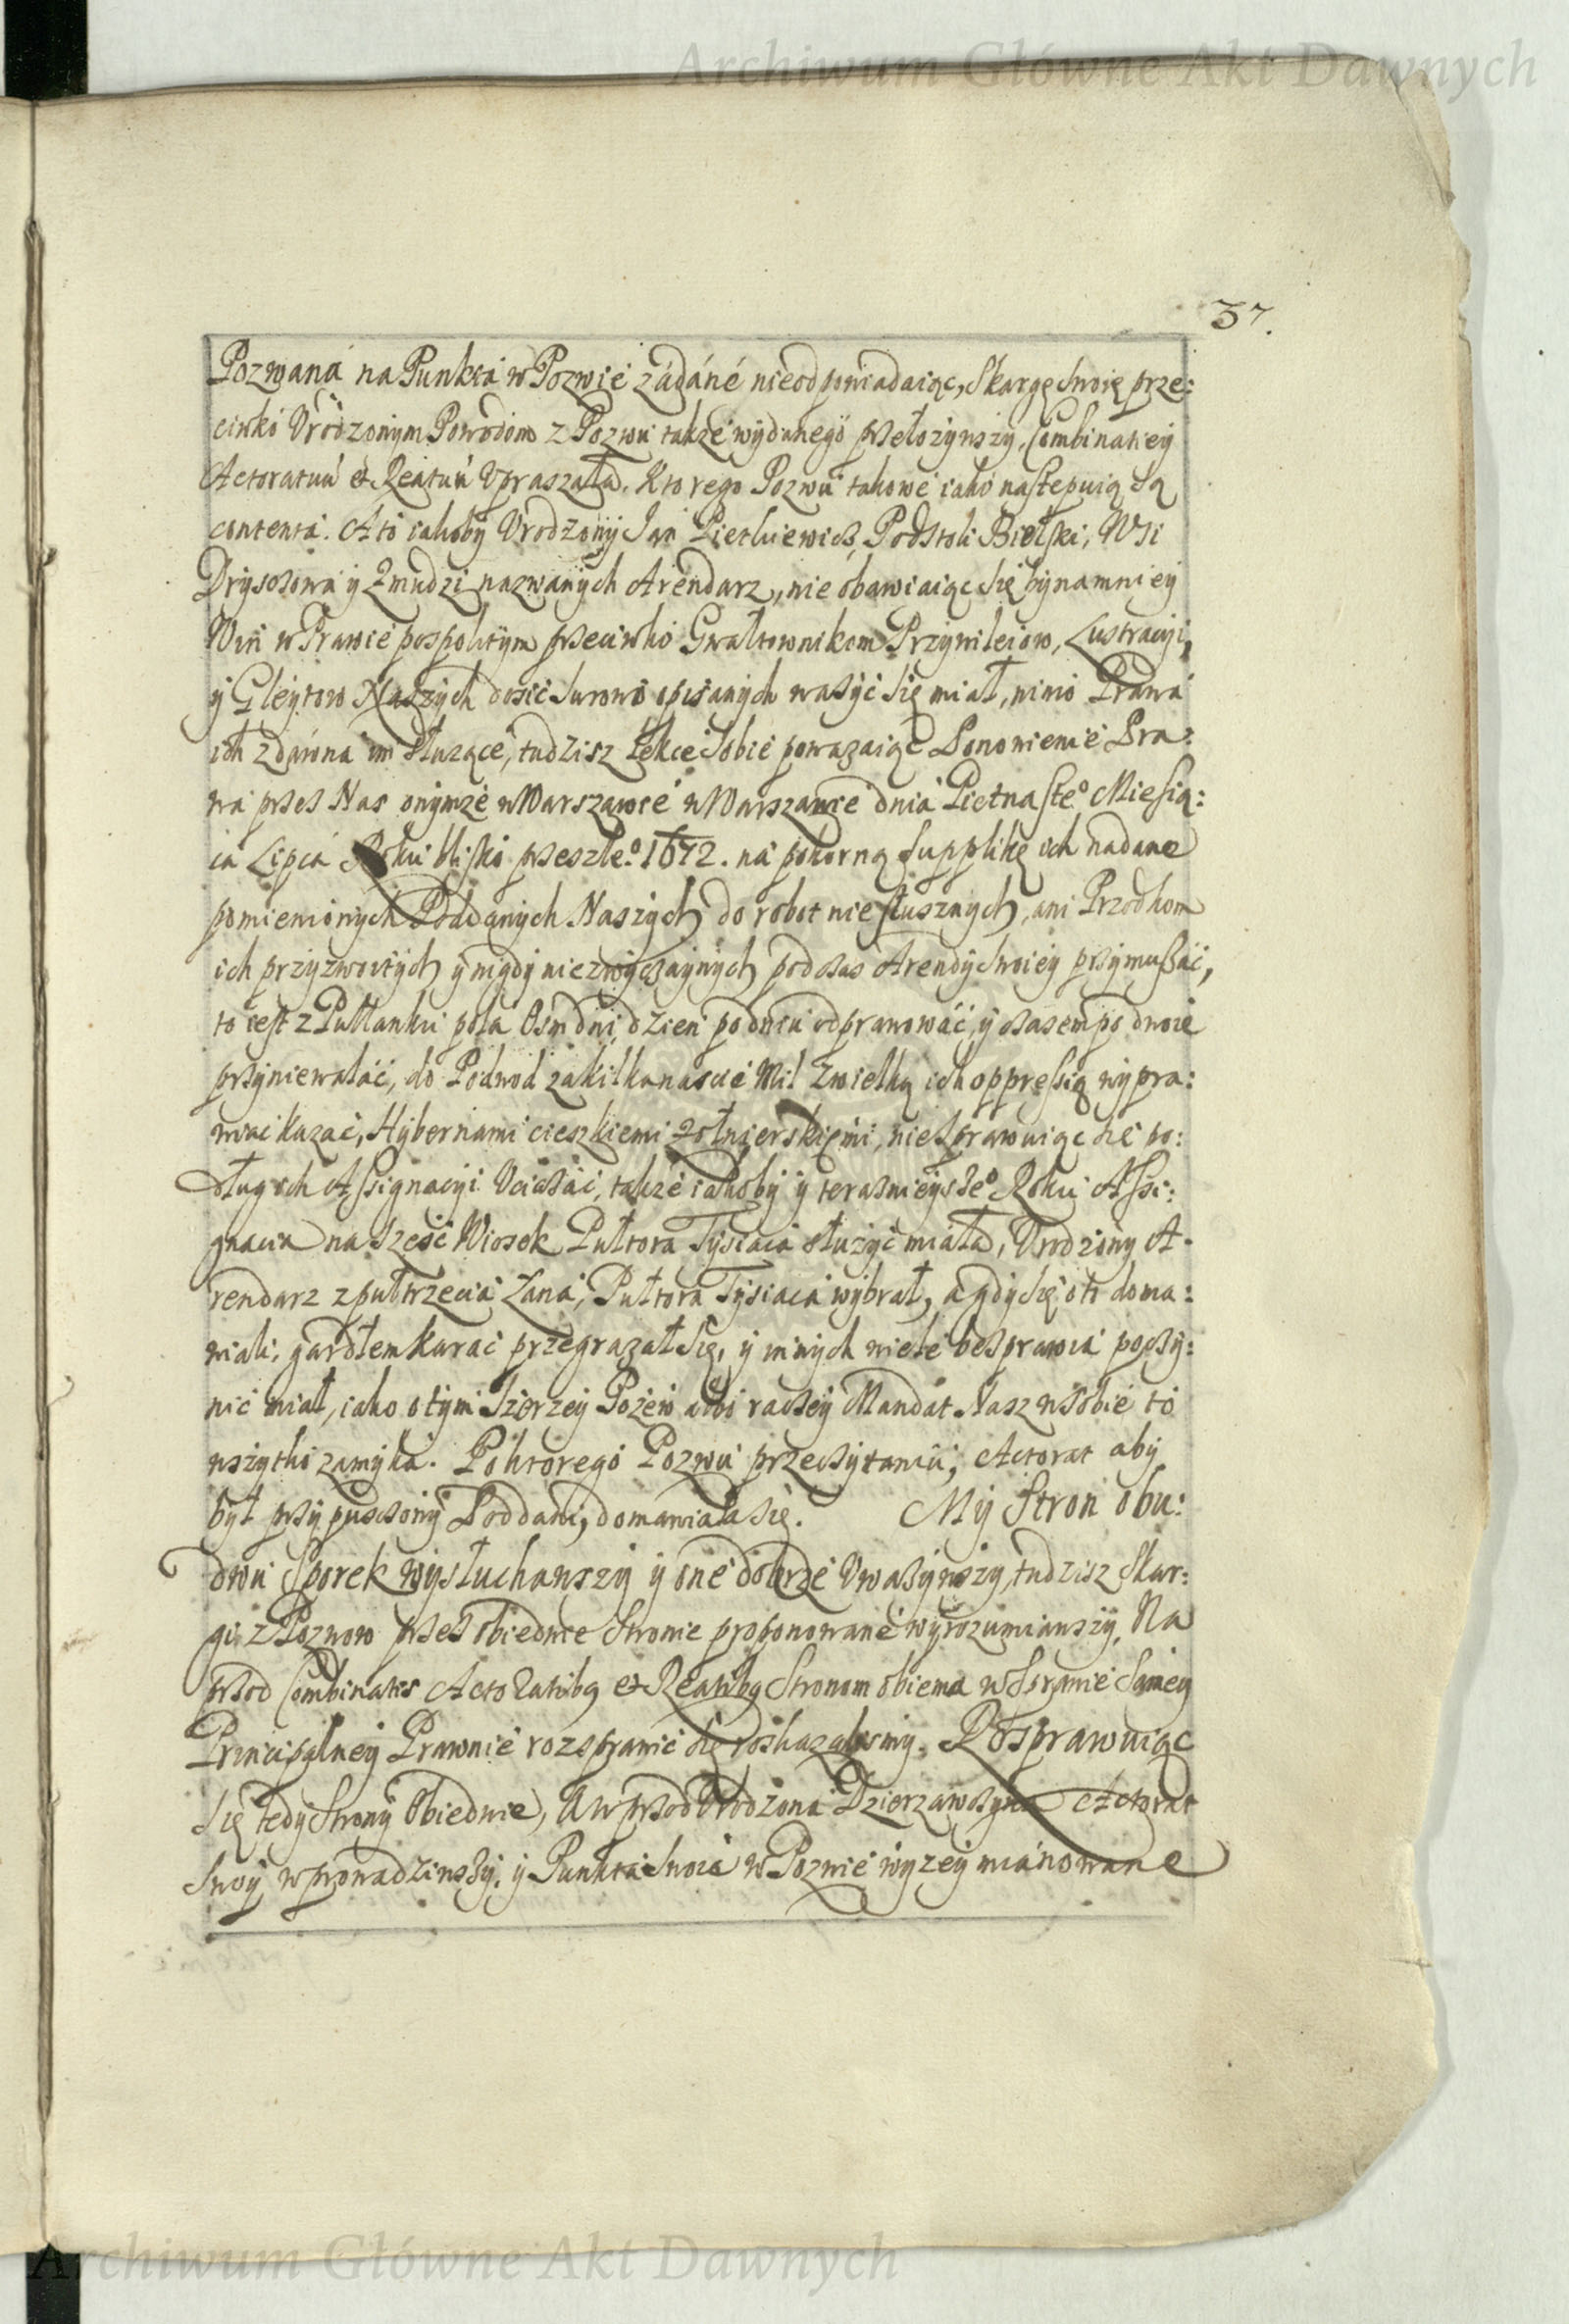 Archiwum Główne Akt Dawnych
37.
Pozwana na Punkta w Pozwie zádáné nieodpowiadaiąc, Skargę Swoię prze:
ciwko Vrodzonym Powodom z Pozwu także wydanego przełożywszy, Combinatiey
Actoratuu et Reatuu Vpraszała. Ktorego Pozwu takowe iako następuią są
contenta. A to iakoby Vrodzony Jan Pietkiewicz Podstoli Bielski, Wsi
y Zmudzi nazwanych Arendarz, nie obawiaiąc się bynamniey
Win w Prawie pospolitym przeciwko Gwałtownikom Przywileiow, Lustracyi,
y Gleytow Naszych dosić surowo opisanych ważyć się miał, mimo Prawa
ich zdawna im służące, tudzisz lekce sobie poważaiąc Ponowienie Pra:
wa przez Nas onymże w Warszawie w Warszawie dnia Piętnasteº Miesią:
ca Lipca Roku blisko przeszłeº 1672. na pokorną supplikę ich nadane
pomienionych Poddanych Naszych do robot niesłusznych, ani Przodkom
ich przyzwoitych y nigdy niezwyczaynych podczas Arendy swoiey przymuszać,
to iest z Pułłanku pola Osm dni dzien po dniu odprawować, y czasem po dwoie
przyniewalać, do Podwod za kilkanascie Mil z wielką ich oppressią wypra:
wiać kazać, Hybernami cięszkiemi żołnierskiemi, nie sprawuiąc się po:
dług ich Assignacyi Vciążać, także iakoby y teraznieyszeº Roku Assi:
gnacia na sześć Wiosek Pułtora Tysiąca służyć miała, Vrodzony A-
rendarz z pułtrzecia Łana, Pułtora Tysiąca wybrał, a gdy się o to doma:
wiali, gardłem karać przegrażał się, y innych wiele bezprawia poczy:
nić miał, iako o tym szerzey Pozew albo raczey Mandat Nasz w sobie to
wszytko zamyka. Po ktorego Pozwu przeczytaniu, Actorat aby
był przypuszczony Poddani, domawiała się. My Stron obu:
dwu Sporek wysłuchawszy y one dobrze Vważywszy, tudzisz Skar:
gi z Pozwow przez obiedwie Stronie proponowane wyrozumiawszy, Na
przod Combinatis Actoratibg et Reatibg Stronom obiema w Sprawie samey
Principalney Prawnie rozsprawić się roskazalismy. Rosprawuiąc
się tedy Strony Obiedwie, a wprzod Vrodzona Dzierzawczyna Actorat
swoy wprowadziwszy, y Punkta swoie w Pozwie wyzey mianowane
Archiwum Główne Akt Dawnych